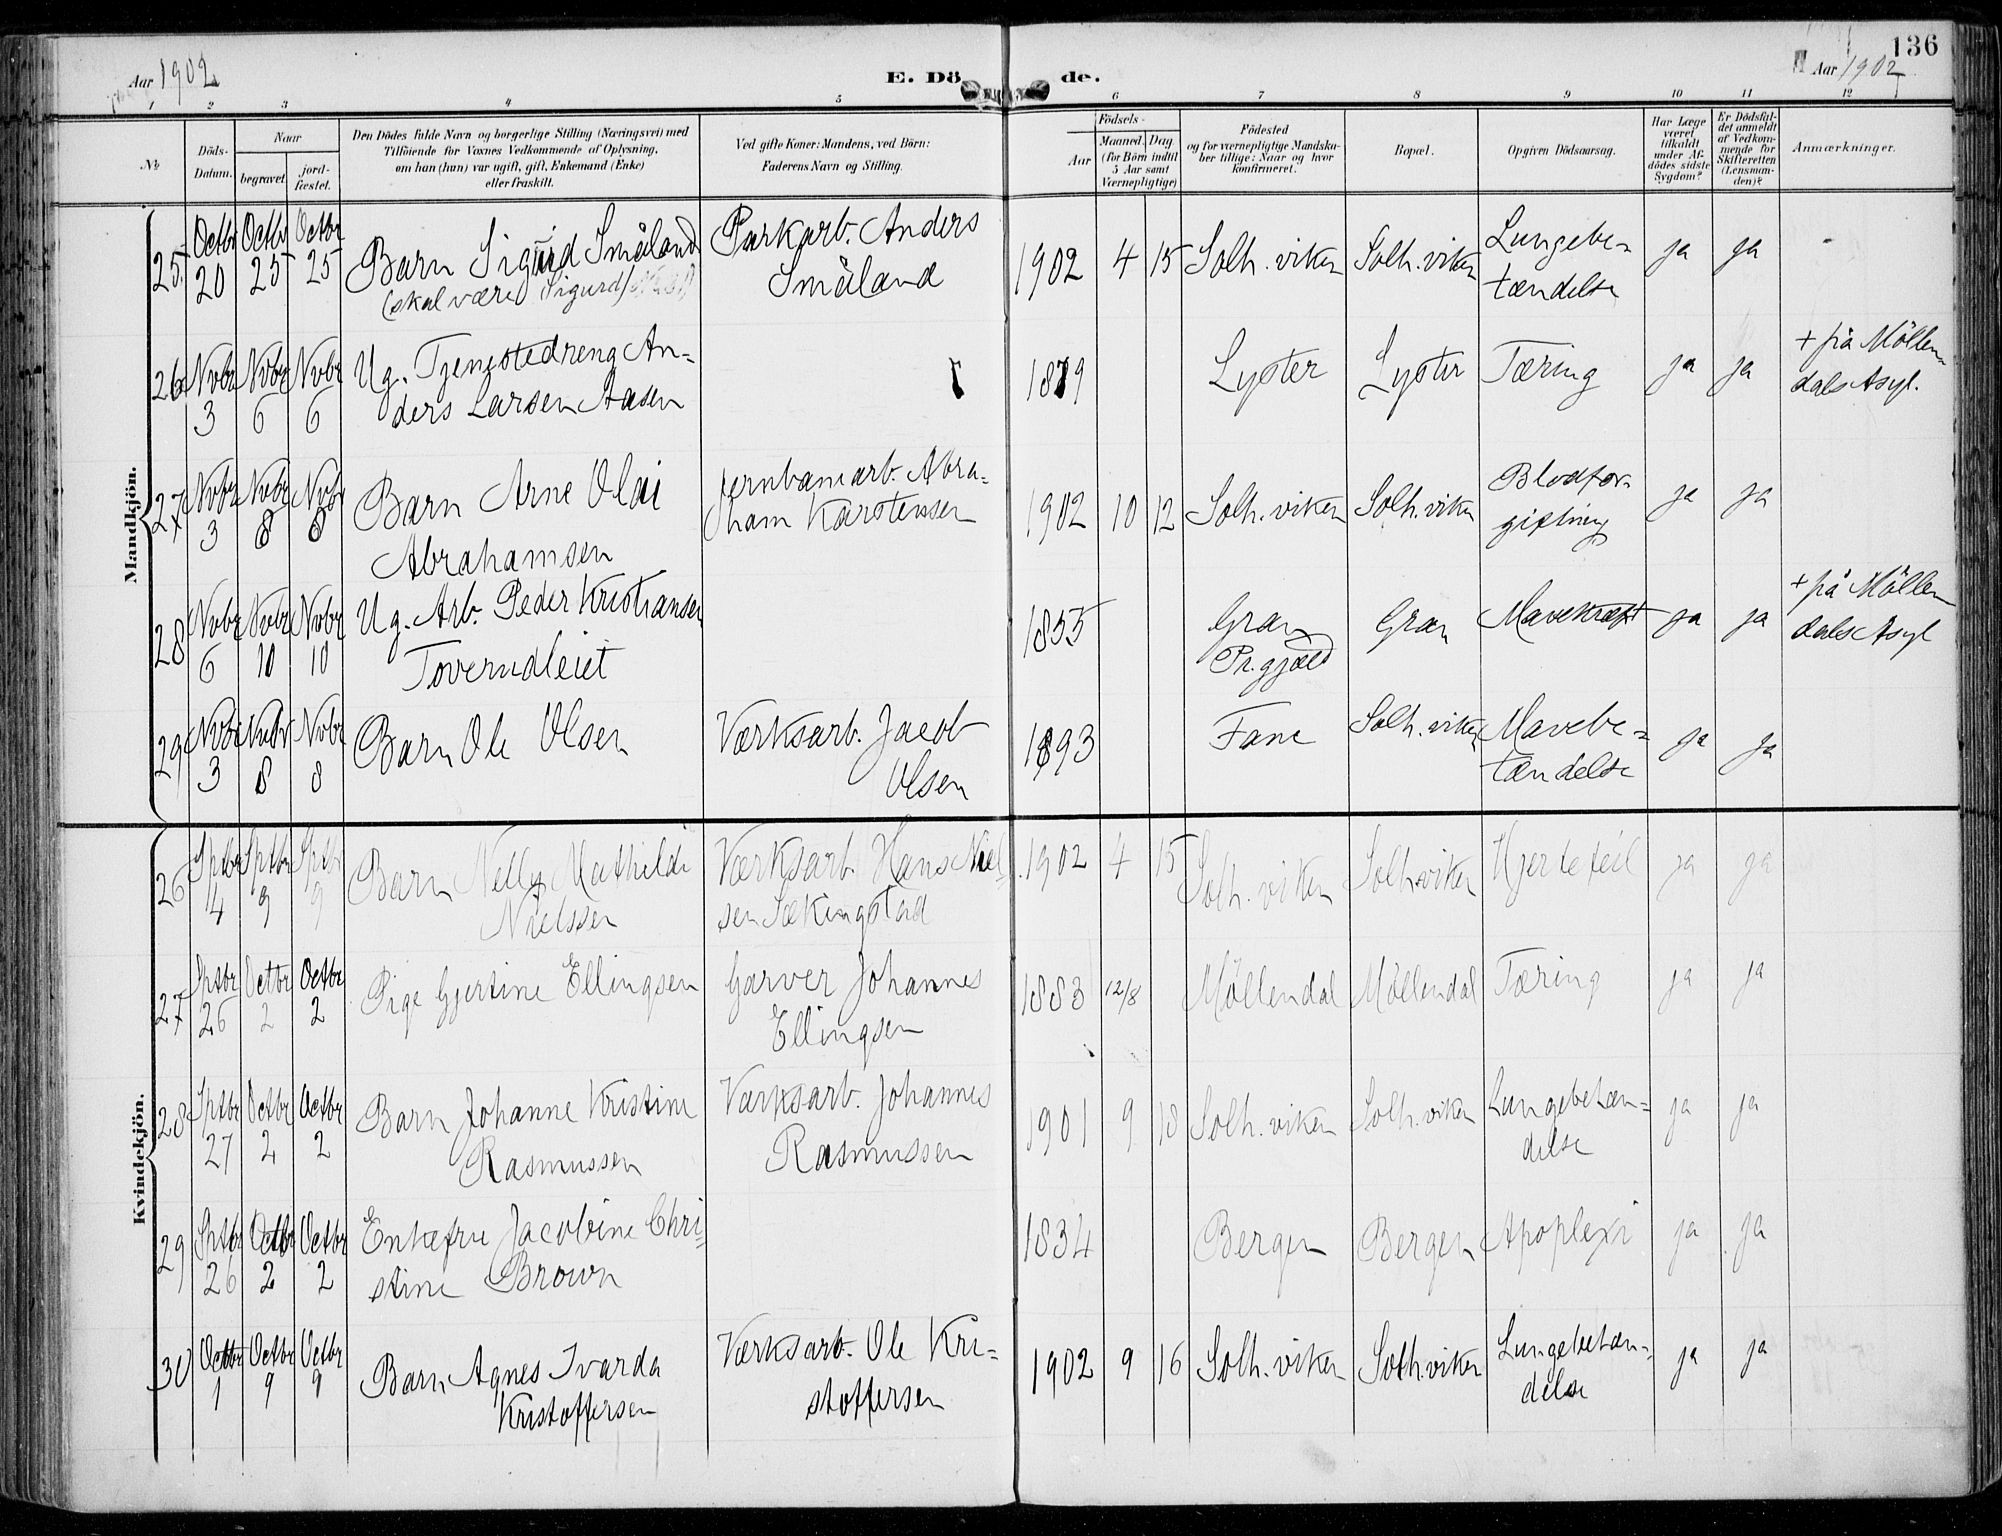 136
Aar 1902
E. Dö de.
Aar 1902
1 2 3 4 5 6 7 8 9 10 11 12
No
Döds-Datum.
Naar
begravet.
jord-fæstet.
Den Dödes fulde Navn og borgerlige Stilling (Næringsvei) med
Tilföiende for Voxnes Vedkommende af Oplysning,
om han (hun) var ugift, gift, Enkemand (Enke)
eller fraskilt.
Ved gifte Koner: Mandens, ved Börn:
Faderens Navn og Stilling.
Födsels-
Aar
Maaned. Dag
(for Börn indtil
5 Aar samt
Værnepligtige)
Födested
og for værnepligtige Mandska-
ber tillige: Naar og hvor
konfirmeret.
Bopæl.
Opgiven Dödsaarsag.
Har Læge
været
tilkaldt
under Af-
dödes sidste
Sygdom?
Er Dödsfal-
det anmeldt
af Vedkom-
mende for
Skifteretten
(Lensman-
den)?
Anmærkninger.
Mandkjön.
25. Octbr 20 Octbr 25 Octbr 25 Barn Sigurd Småland
(skal være Sigurd)
Parkarb. Anders
Småland
1902 4 15 Solh. viken Solh. viken Lungebe-
tændelse ja ja -
26 Nvbr 3 Nvbr 6 Nvbr 6 Ug. Tjenestedreng An-
ders Larsen Aasen
1879 Lyster Lyster Tæring ja ja + på Möllen-
dals Asyl.
27 Nvbr 3 Nvbr 8 Nvbr 8 Barn Arne Olai
Abrahamsen
Jernbanearb. Abra-
ham Karstensen
1902 10 12 Solh. viken Solh. viken Blodfor-
giftning ja ja
28 Nvbr 6 Nvbr 10 Nvbr 10 Ug. Arb. Peder Kristiansen
1855 Gran
Pr.gjæld Gran Mavekræft ja ja + på Möllen
dals Asyl
29 Nvbr 3 Nvbr 8 Nvbr 8 Barn Ole Olsen
Værksarb. Jacob
Olsen
1893 Fane Solh. viken Mavebe-
tændelse ja ja
Kvindekjön.
26 Sptbr 4 Sptbr 9 Sptbr 9 Barn Nelly Mathilde
Nielssen
Værksarb. Hans Niel-
sen Sækingstad
1902 4 15 Solh. viken Solh. viken Hjertefeil ja ja
27 Sptbr 26 Octbr 2 Octbr 2 Pige Gjertine Ellingsen
Garver Johannes
Ellingsen
1883 12/8 Möllendal Möllendal Tæring ja ja
28 Sptbr 27 Octbr 2 Octbr 2 Barn Johanne Kristine
Rasmussen
Værksarb. Johannes
Rasmussen
1901 9 18 Solh. viken Solh. viken Lungebetæn-
delse ja ja
29 Sptbr 26 Octbr 2 Octbr 2 Enkefru Jacobine Chri-
stine Brown
1834 Bergen Bergen Apoplexi ja ja
30 Octbr 1 Octbr 9 Octbr 9 Barn Agnes Ivarda
Kristoffersen
Værksarb. Ole Kri-
stoffersen
1902 9 16 Solh. viken Solh. viken Lungebetæn-
delse ja ja